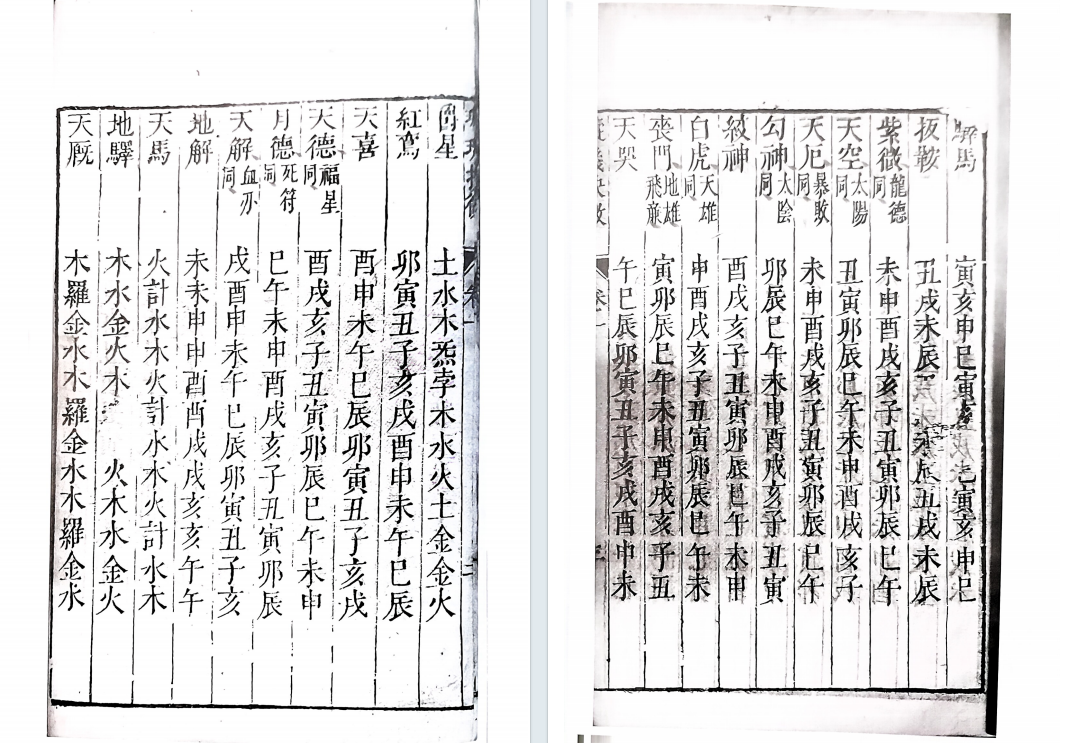 驛馬 寅亥申巳寅 寅亥申巳
扳鞍 丑戌未辰 未辰丑戌未辰
紫微 龍德同 未申酉戌亥子丑寅卯辰巳午
天空 太陽同 丑寅卯辰巳午未申酉戌亥子
天厄 暴敗同 未申酉戌亥子丑寅卯辰巳午
勾神 太陰同 卯辰巳午未申酉戌亥子丑寅
絞神 酉戌亥子丑寅卯辰巳午未申
白虎 天雄同 申酉戌亥子丑寅卯辰巳午未
喪門 地雄飛廉 寅卯辰巳午未申酉戌亥子丑
天哭 午巳辰卯寅丑子亥戌酉申未
卷一
爵星 土水木炁孛木水火土金金火
紅鸞 卯寅丑子亥戌酉申未午巳辰
天喜 酉申未午巳辰卯寅丑子亥戌
天德 福星同 酉戌亥子丑寅卯辰巳午未申
月德 死符同 巳午未申酉戌亥子丑寅卯辰
天解 血刃同 戌酉申未午巳辰卯寅丑子亥
地解 未未申申酉酉戌戌亥亥午午
天馬 火計水木火計水木火計水木
地驛 木水金火木 火木水金火
天厩 木羅金水木羅金水木羅金水